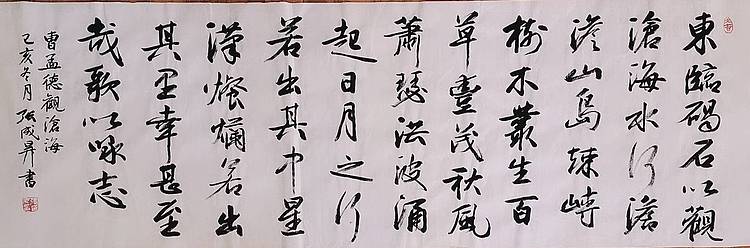 東臨碣石以觀
滄海水何澹
澹山島竦峙
樹木叢生百
草豐茂秋風
蕭瑟洪波涌
起日月之行
若出其中星
漢燦爛若出
其里幸甚至
哉歌以咏志
曹孟德觀滄海
己亥冬月 张成昇書